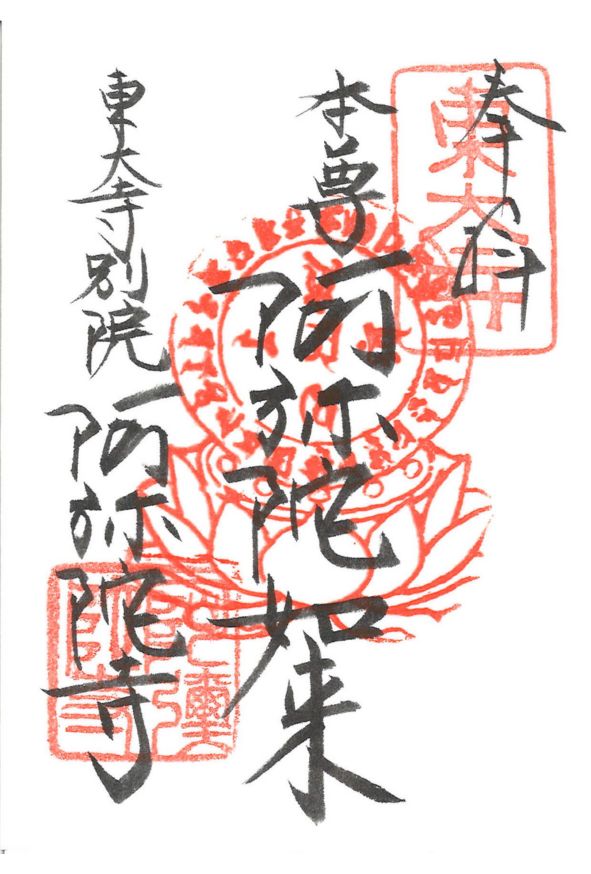 奉拝
本尊 阿弥陀如来
東大寺別院 阿弥陀寺
東大寺